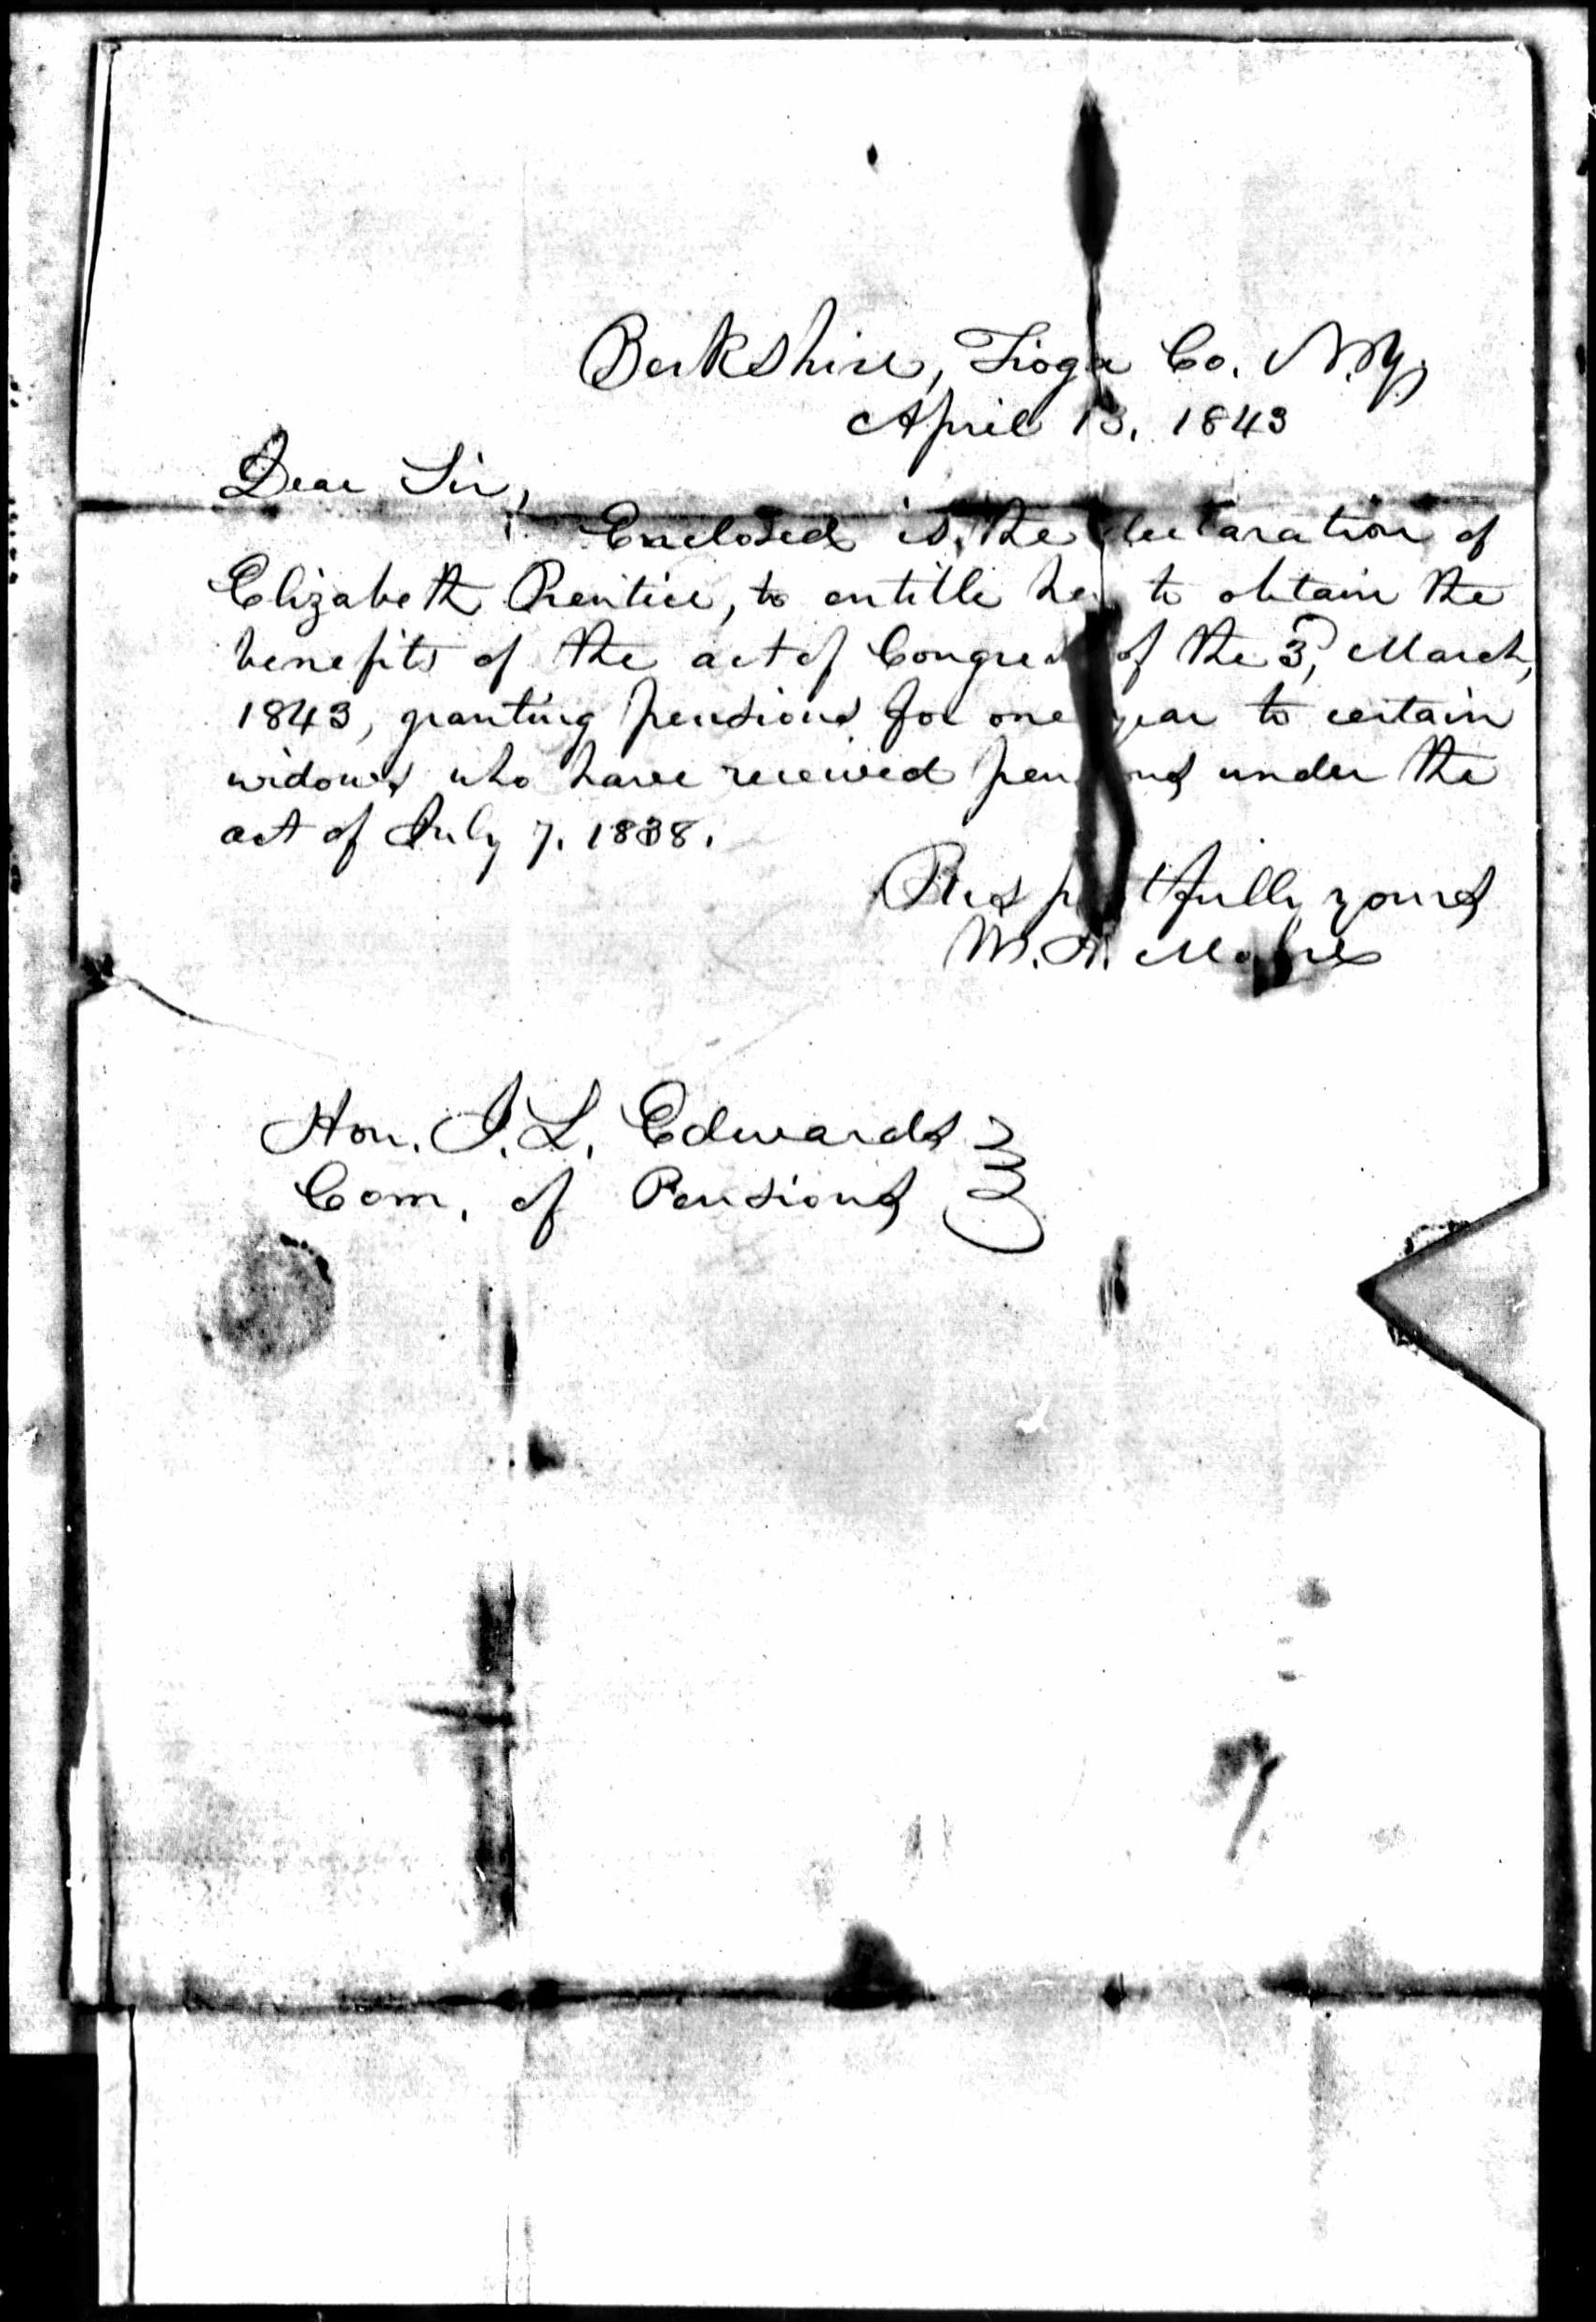 Berkshire, Tioga Co. N.Y.
April 13, 1843
Dear Sir,
Enclosed is the declaration of
Elizabeth Prentice, to entitle her to obtain the
benefits of the act of Congress of the 3d, March,
1843, granting pensions for one year to certain
widows who have received pensions under the
act of July 7. 1838.
Respectfully yours
W. A.
Hon. J. L. Edwards
Com. of Pensions